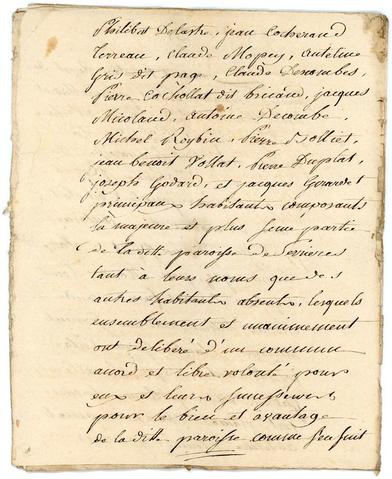 Philibert Delastre, jean Cocherand
Terreau, Claude Mopey, anteline
Gris dit page, Claude Decombes,
Pierre Cachollat dit
jacques
Nicolaud, antoine Decombe,
Michel Roybin, Pierre Jolliet,
jean benoit Vollat, Pierre Duplat,
joseph Godard, et jacques Girardet
principaux habitants composants
la majeure et plus seine partie
de la ditte paroisse de Serrieres
tant à leurs noms que des
autres habitants absents, lesquels
ensemblement et unanimement
ont deliberé d'un commun
accord et libre volonté pour
eux et leurs successeurs
pour le bien et avantage
de la ditte paroisse comme s'en suit